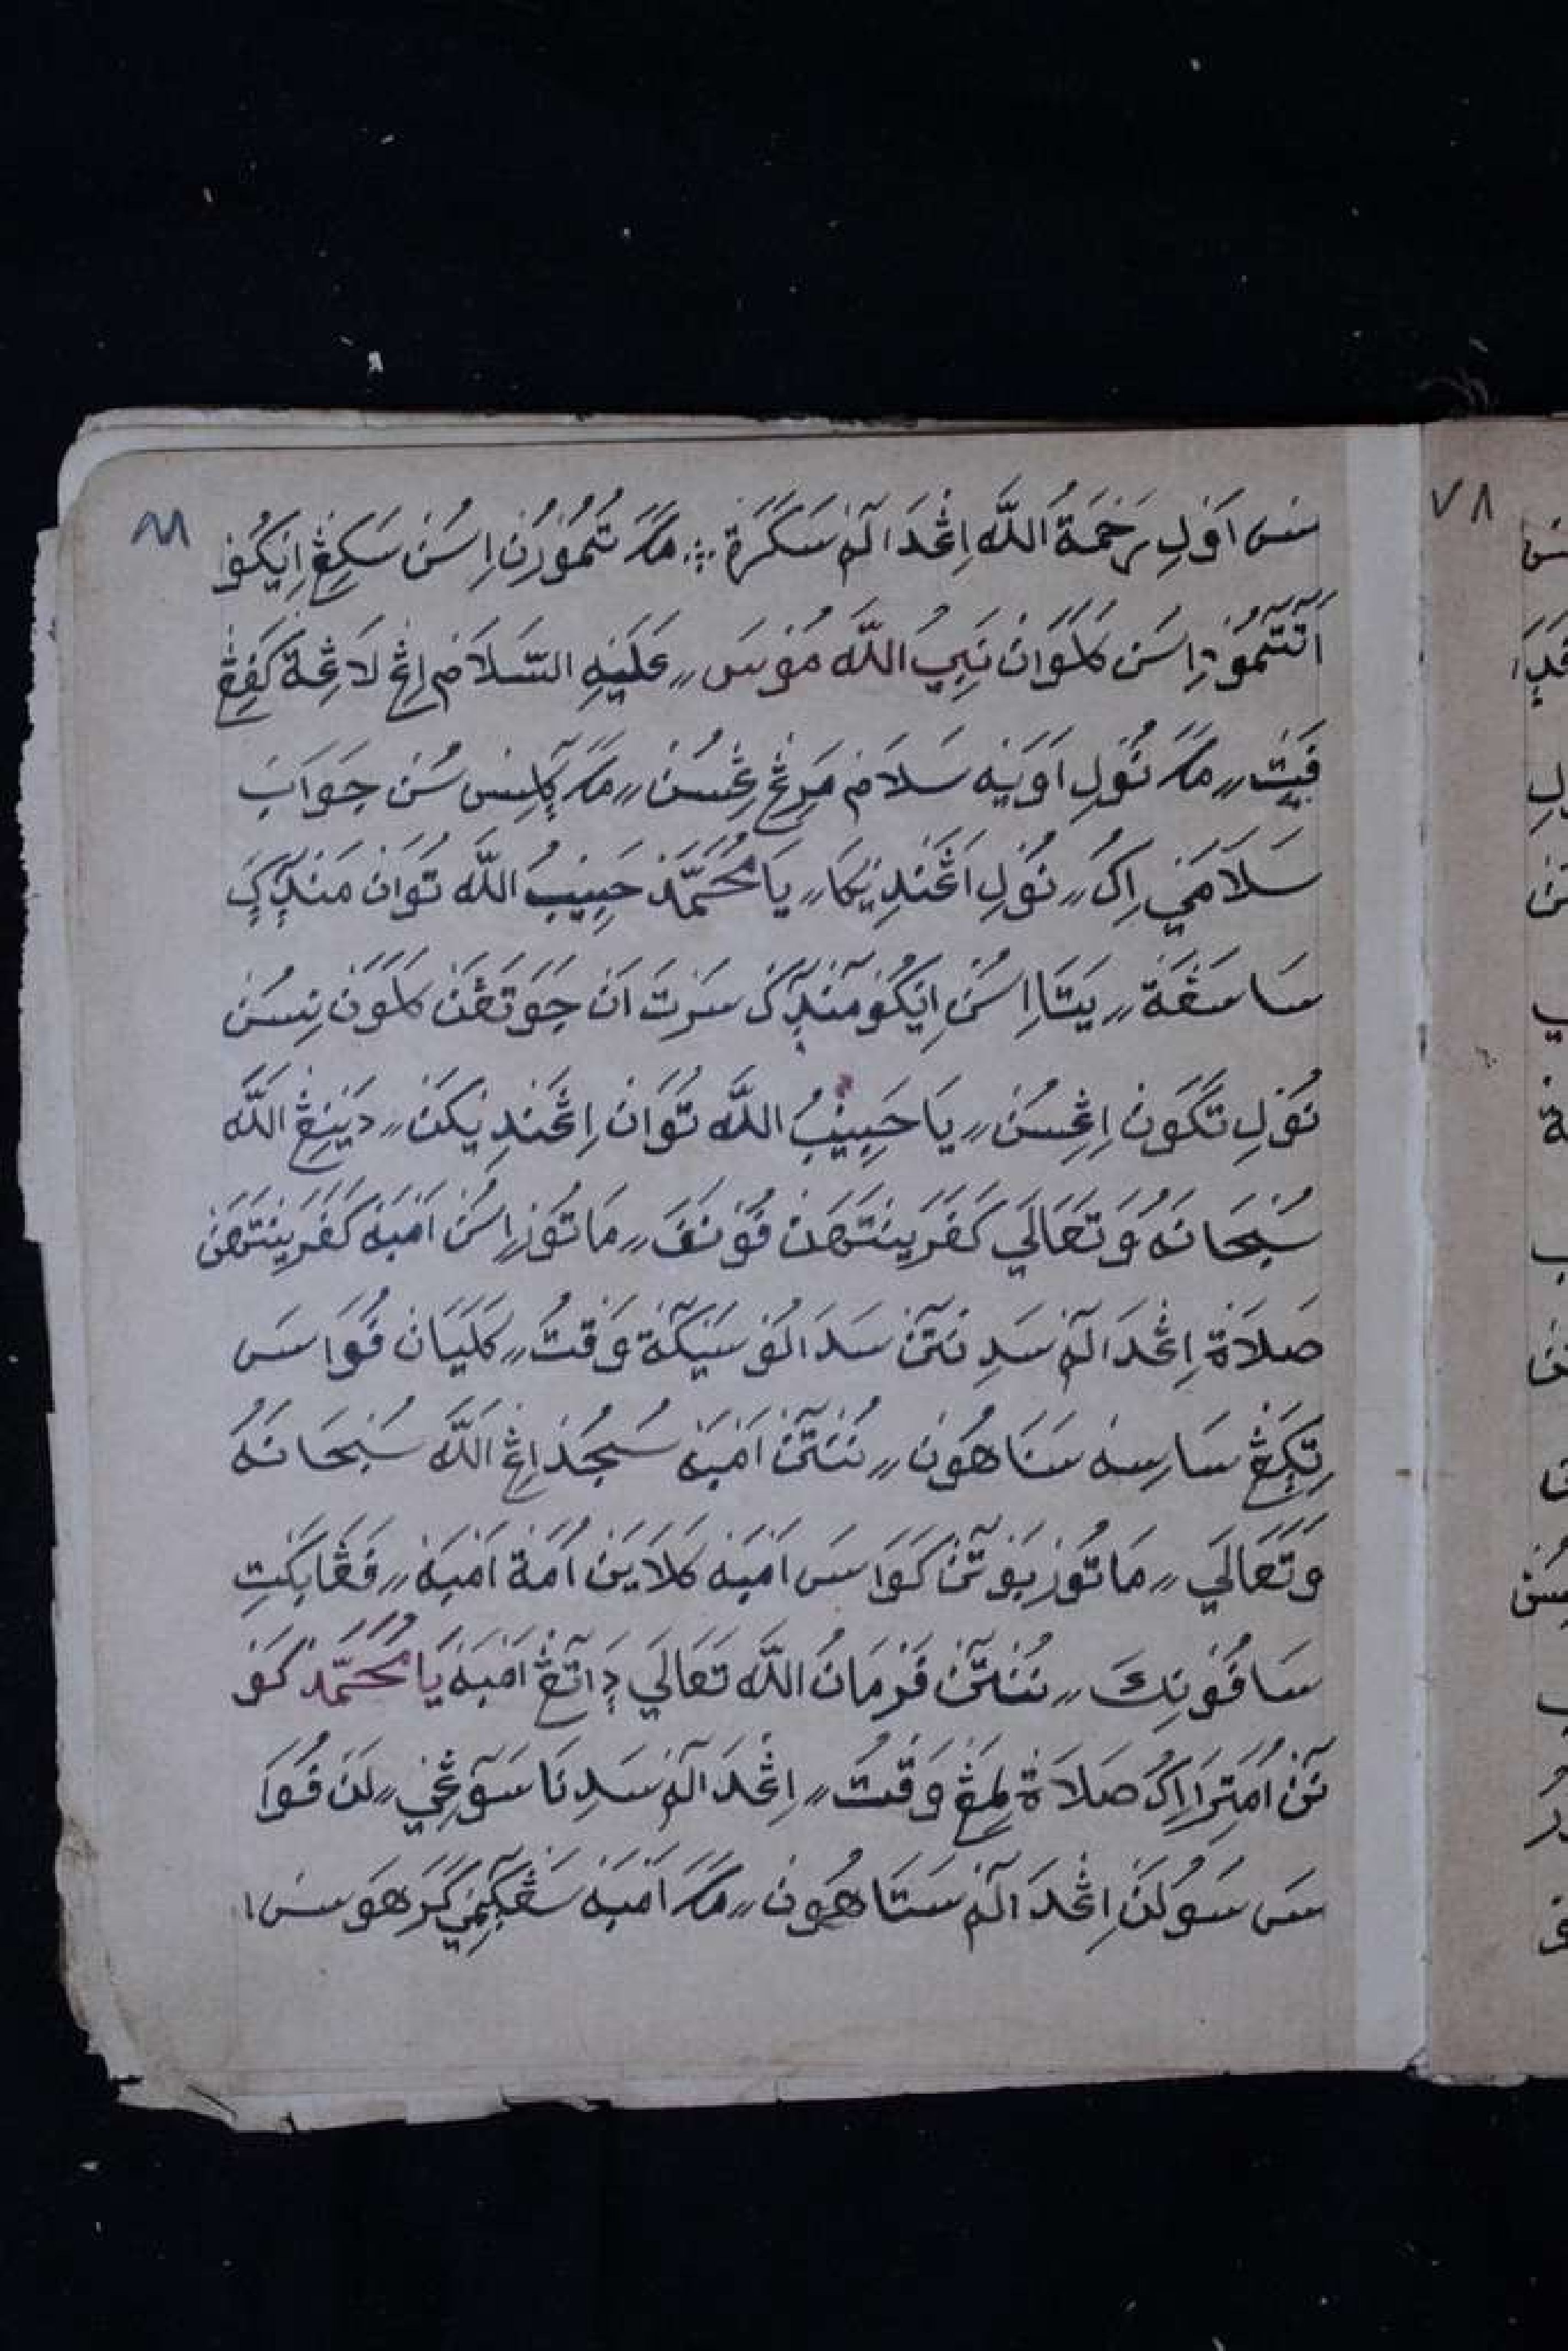 سَسَ اَوْلِهْ رَحْمَةُ اللّٰه اِڠْدَالٓمْ سَكَرَةْ ؞ مَكَ تُمُوْرُنْ اِسُنْ سَكِڠْ اِيْكُوْ
اَتَتٓمُوْ اِسُنْ كَلَوَانْ نَبِيُ اللّٰه مُوْسَى ,, عَلَيْهِ السَّلَامْ اِڠْ لَاڠِةْ كَڤِڠْ
ڤِيْتُ ,, مَكَ نُوْلِ اَوَيْهْ سَلَامْ مَرِڠْ ڠِسُنْ ,, مَكَ بَالٓسْ سُنْ جَوَابْ
سَلَامٓيْ اِكُ ,, نُوْلِ اَڠَنْدِيْكَا ,, يَا مُحَمَّدْ حَبِيْبُ اللّٰه تُوَانْ مَنْدٓكْ
سَاسَڤَةْ ,, يَتَا اِسُنْ اِيْكُوْ مَنْدٓكْ سَرْتَ اَنْ جَوَتَڤَنْ كَلَوَنْ نِسُنْ
نُوْلِ تَكَوْنْ اِڠِسُنْ ,, يَا حَبِيْبُ اللّٰه تُوَانْ اِڠَنْدِيْكَنْ ,, دَيْنِڠْ اللّٰه
سُبْحَانَهُ وَتَعَالَى كَڤَرِيْنْتَهَنْ ڤُوْنَڤَ ,, مَاتُوْرْ اِسُنْ اَمْبَهْ كَڤَرِيْنْتَهَنْ
صَلَاةْ اِڠْدَالٓمْ سَدِنْتٓنْ سَدَالُوْ سَيْكٓةْ وَقْتُ ,, كَلَيَانْ ڤُوَاسَ
تِڬَڠْ سَاسِهْ سَتَاهُوْنْ ,, نُنْتٓنْ اَمْبَهْ سُجُدْ اِڠْ اللّٰه سُبْحَانَهُ
وَتَعَالَى ,, مَاتُوْرْ بَوْتٓنْ كَوَاسَ اَمْبَهْ كَلَايَنْ اُمَةْ اَمْبَهْ ,, ڤَڠَابَكْتِ
سَاڤُوْنِكَ ,, نُنْتٓنْ فَرْمَانُ اللّٰه تَعَالَى دَاتٓڠْ اَمْبَهْ يَا مُحَمَّدْ كَوْ
نٓنْ اُمَتِرَا اِكُ صَلَاةْ لِمَڠْ وَقْتُ ,, اِڠْدَالٓمْ سَدِنَا سَوٓڠِيْ ,, لَنْ ڤُوَا
سَ سَوُلَنْ اِڠْدَالٓمْ سَتَاهُوْنْ ,, مَكَ اَمْبَهْ سَڠْكٓمِيْ كَرْهَوْسَنْ